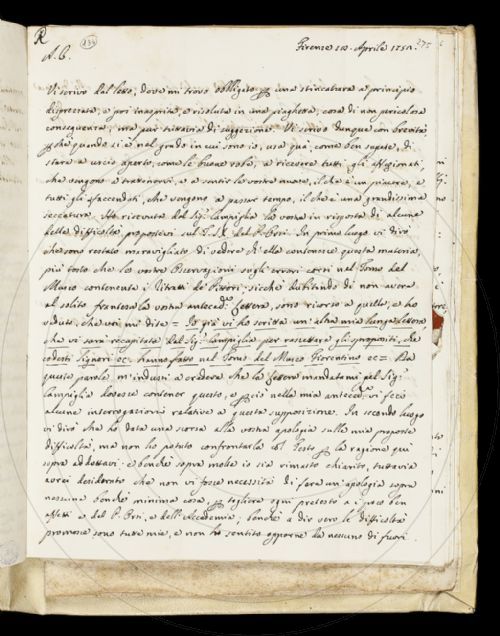 R
234
375
Firenze 10. Aprile 1751.
A. C.
Vi scrivo dal letto, dove mi trovo obbligato per una stincatura a principio
disprezzata, e poi inasprita, e risoluta in una piaghetta, cosa di non pericolosa
conseguenza, ma pur tuttavia di suggezione. Vi scrivo dunque con brevità,
perchè quando si è nel grado in cui sono io, usa quà, come ben sapete, di
stare a uscio aperto, come le buone robe, a ricevere tutti gli affezionati,
che vengono a trattenerti, e a sentir le vostre nuove, il che è un piacere, e
tutti gli sfaccendati, che vengono a passar tempo, il che è una grandissima
seccatura. Ho ricevuta dal Sig.r Lampiglia la vostra in risposta di alcune
delle difficoltà propostevi sul del P. Ori. In primo luogo vi dirò
che sono restato maravigliato di vedere ch'ella contenesse questa materia,
più tosto che le vostre Osservazioni sugli errori corsi nel Tomo del
Museo contenente i Ritratti de' Pittori; sicchè dubitando di non avere
al solito frantesa la vostra anteced.te Lettera, sono ricorso a quella, e ho
veduto, che voi mi dite = Io già vi ho scritta un'altra mia lunga lettera,
che vi sarà recapitata dal Sig.r Lampiglia per rassettare gli spropositi, che
codesti Signori ec. hanno fatto nel Tomo del Museo Fiorentino ec = Da
queste parole m'indussi a credere che la Lettera mandatami pel Sig.r
Lampiglia dovesse contener questo, e perciò nella mia anteced.te vi feci
alcune interrogazioni relative a questa supposizione. In secondo luogo
vi dirò che ho data una scorsa alla vostra apologia sulle mie proposte
difficoltà, ma non ho potuto confrontarla col Testo per la ragione quì
sopra addottavi: e benchè sopra molte io sia rimasto chiarito, tuttavia
avrei desiderato che non vi fosse necessità di fare un'apologia sopra
nessuna benchè minima cosa, per togliere ogni pretesto a i poco ben
affetti e del P. Ori, e dell'Accademia, benchè a dir vero le difficoltà
promosse sono tutte mie, e non ho sentito opporne da nessuno di fuori.